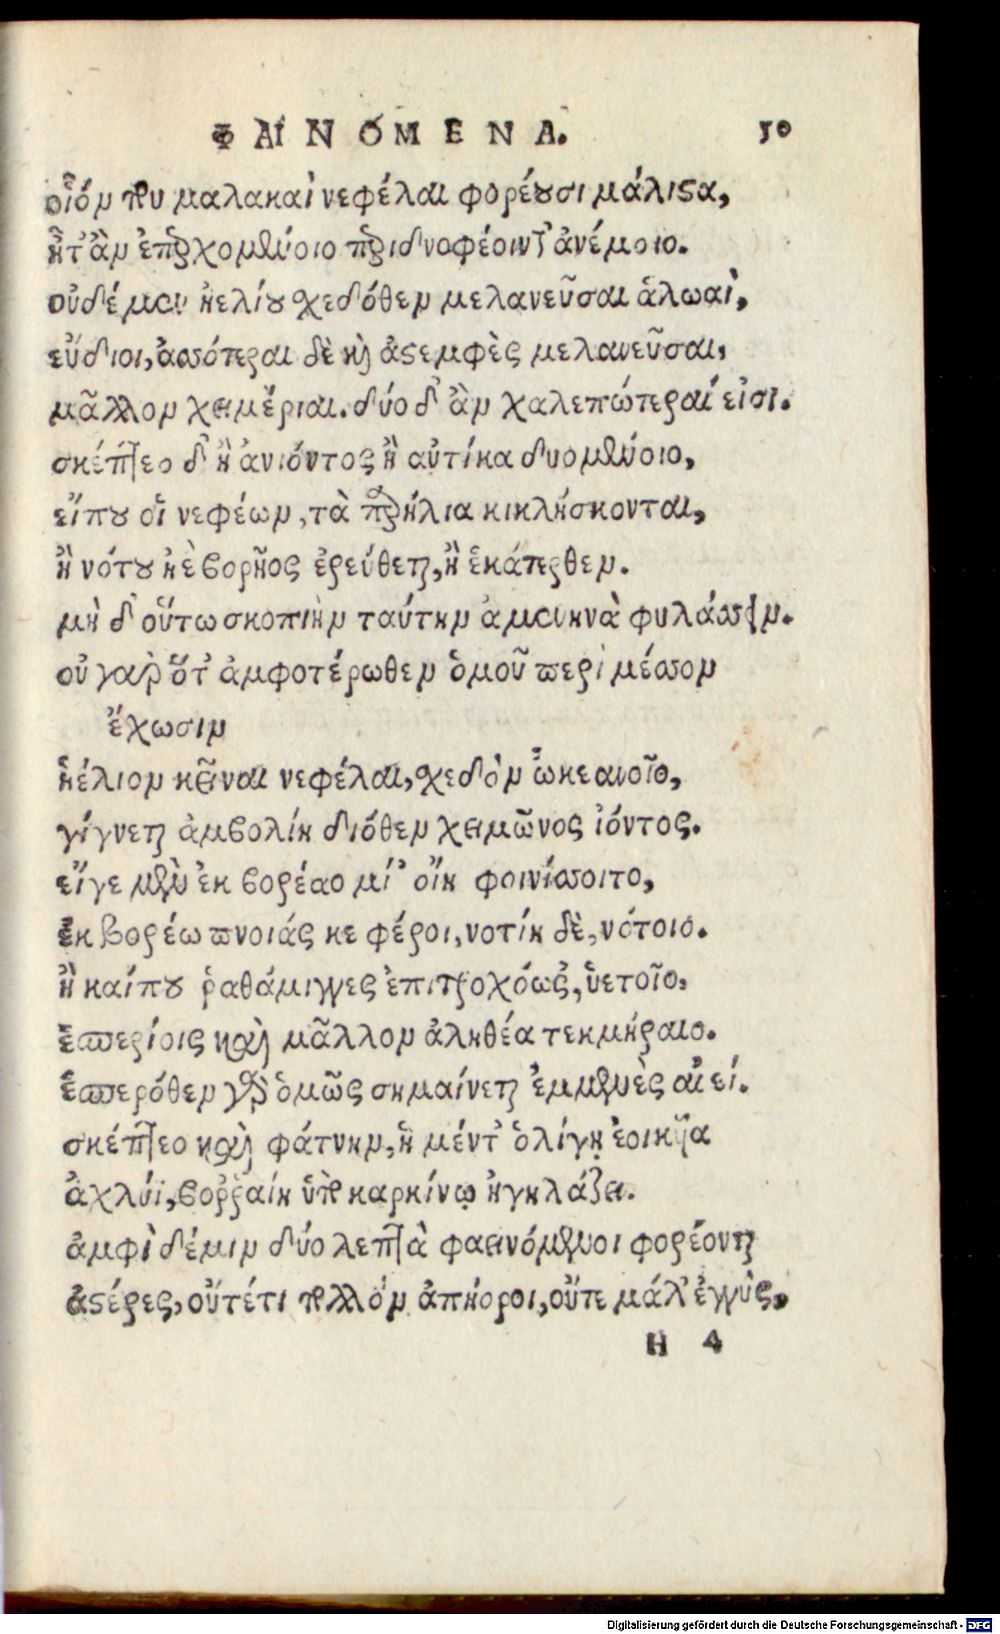 ΦΑΙΝΟΜΕΝΑ. 50
οἷόν που μαλακαὶ νεφέλαι φορέουσι μάλιστα,
ἤτ' ἂν ἐπερχομένοιο περιδνοφέοιντ' ἀνέμοιο.
οὐδέ μεν ἠελίου σχεδόθεν μελανεῦσαι ἁλωαὶ,
εὔδιοι, ἀσσότεραι δὲ καὶ ἀστεμφὲς μελανεῦσαι,
μᾶλλον χειμέριαι. δύο δ' ἂν χαλεπώτεραί εἰσι.
σκέπτεο δ' ἢ ἀνιόντος ἢ αὐτίκα δυομένοιο,
εἴπου οἱ νεφέων, τὰ παρήλια κικλήσκονται,
ἢ νότου ἠὲ βορῆος ἐρεύθεται, ἢ ἑκάτερθεν.
μὴ δ' οὕτω σκοπιὴν ταύτην ἀμενηνὰ φυλάσσειν.
οὐ γὰρ ὅτ' ἀμφοτέρωθεν ὁμοῦ περὶ μέσσον
ἔχωσιν
ἠέλιον κεῖναι νεφέλαι, σχεδὸν ὠκεανοῖο,
γίγνεται ἀμβολίη διόθεν χειμῶνος ἰόντος.
εἴγε μὲν ἐκ βορέαο μί' οἴη φοινίσσοιτο,
ἐκ βορέω πνοιάς κε φέροι, νοτίη δὲ, νότοιο.
ἢ καίπου ῥαθάμιγγες ἐπιτροχόωσ', ὑετοῖο,
ἑσπερίοις καὶ μᾶλλον ἀληθέα τεκμήραιο.
ἑσπερόθεν γὰρ ὁμῶς σημαίνεται ἐμμενὲς αἰεί.
σκέπτεο καὶ φάτνην, ἣ μέντ' ὀλίγῃ ἐοικυῖα
ἀχλύϊ, βορραίη ὑπὸ καρκίνῳ ἡγηλάζει.
ἀμφὶ δέ μιν δύο λεπτὰ φαεινόμενοι φορέονται
ἀστέρες, οὔτέτι πολλὸν ἀπήοροι, οὔτε μάλ' ἐγγὺς,
Η 4
Digitalisierung gefördert durch die Deutsche Forschungsgemeinschaft - DFG